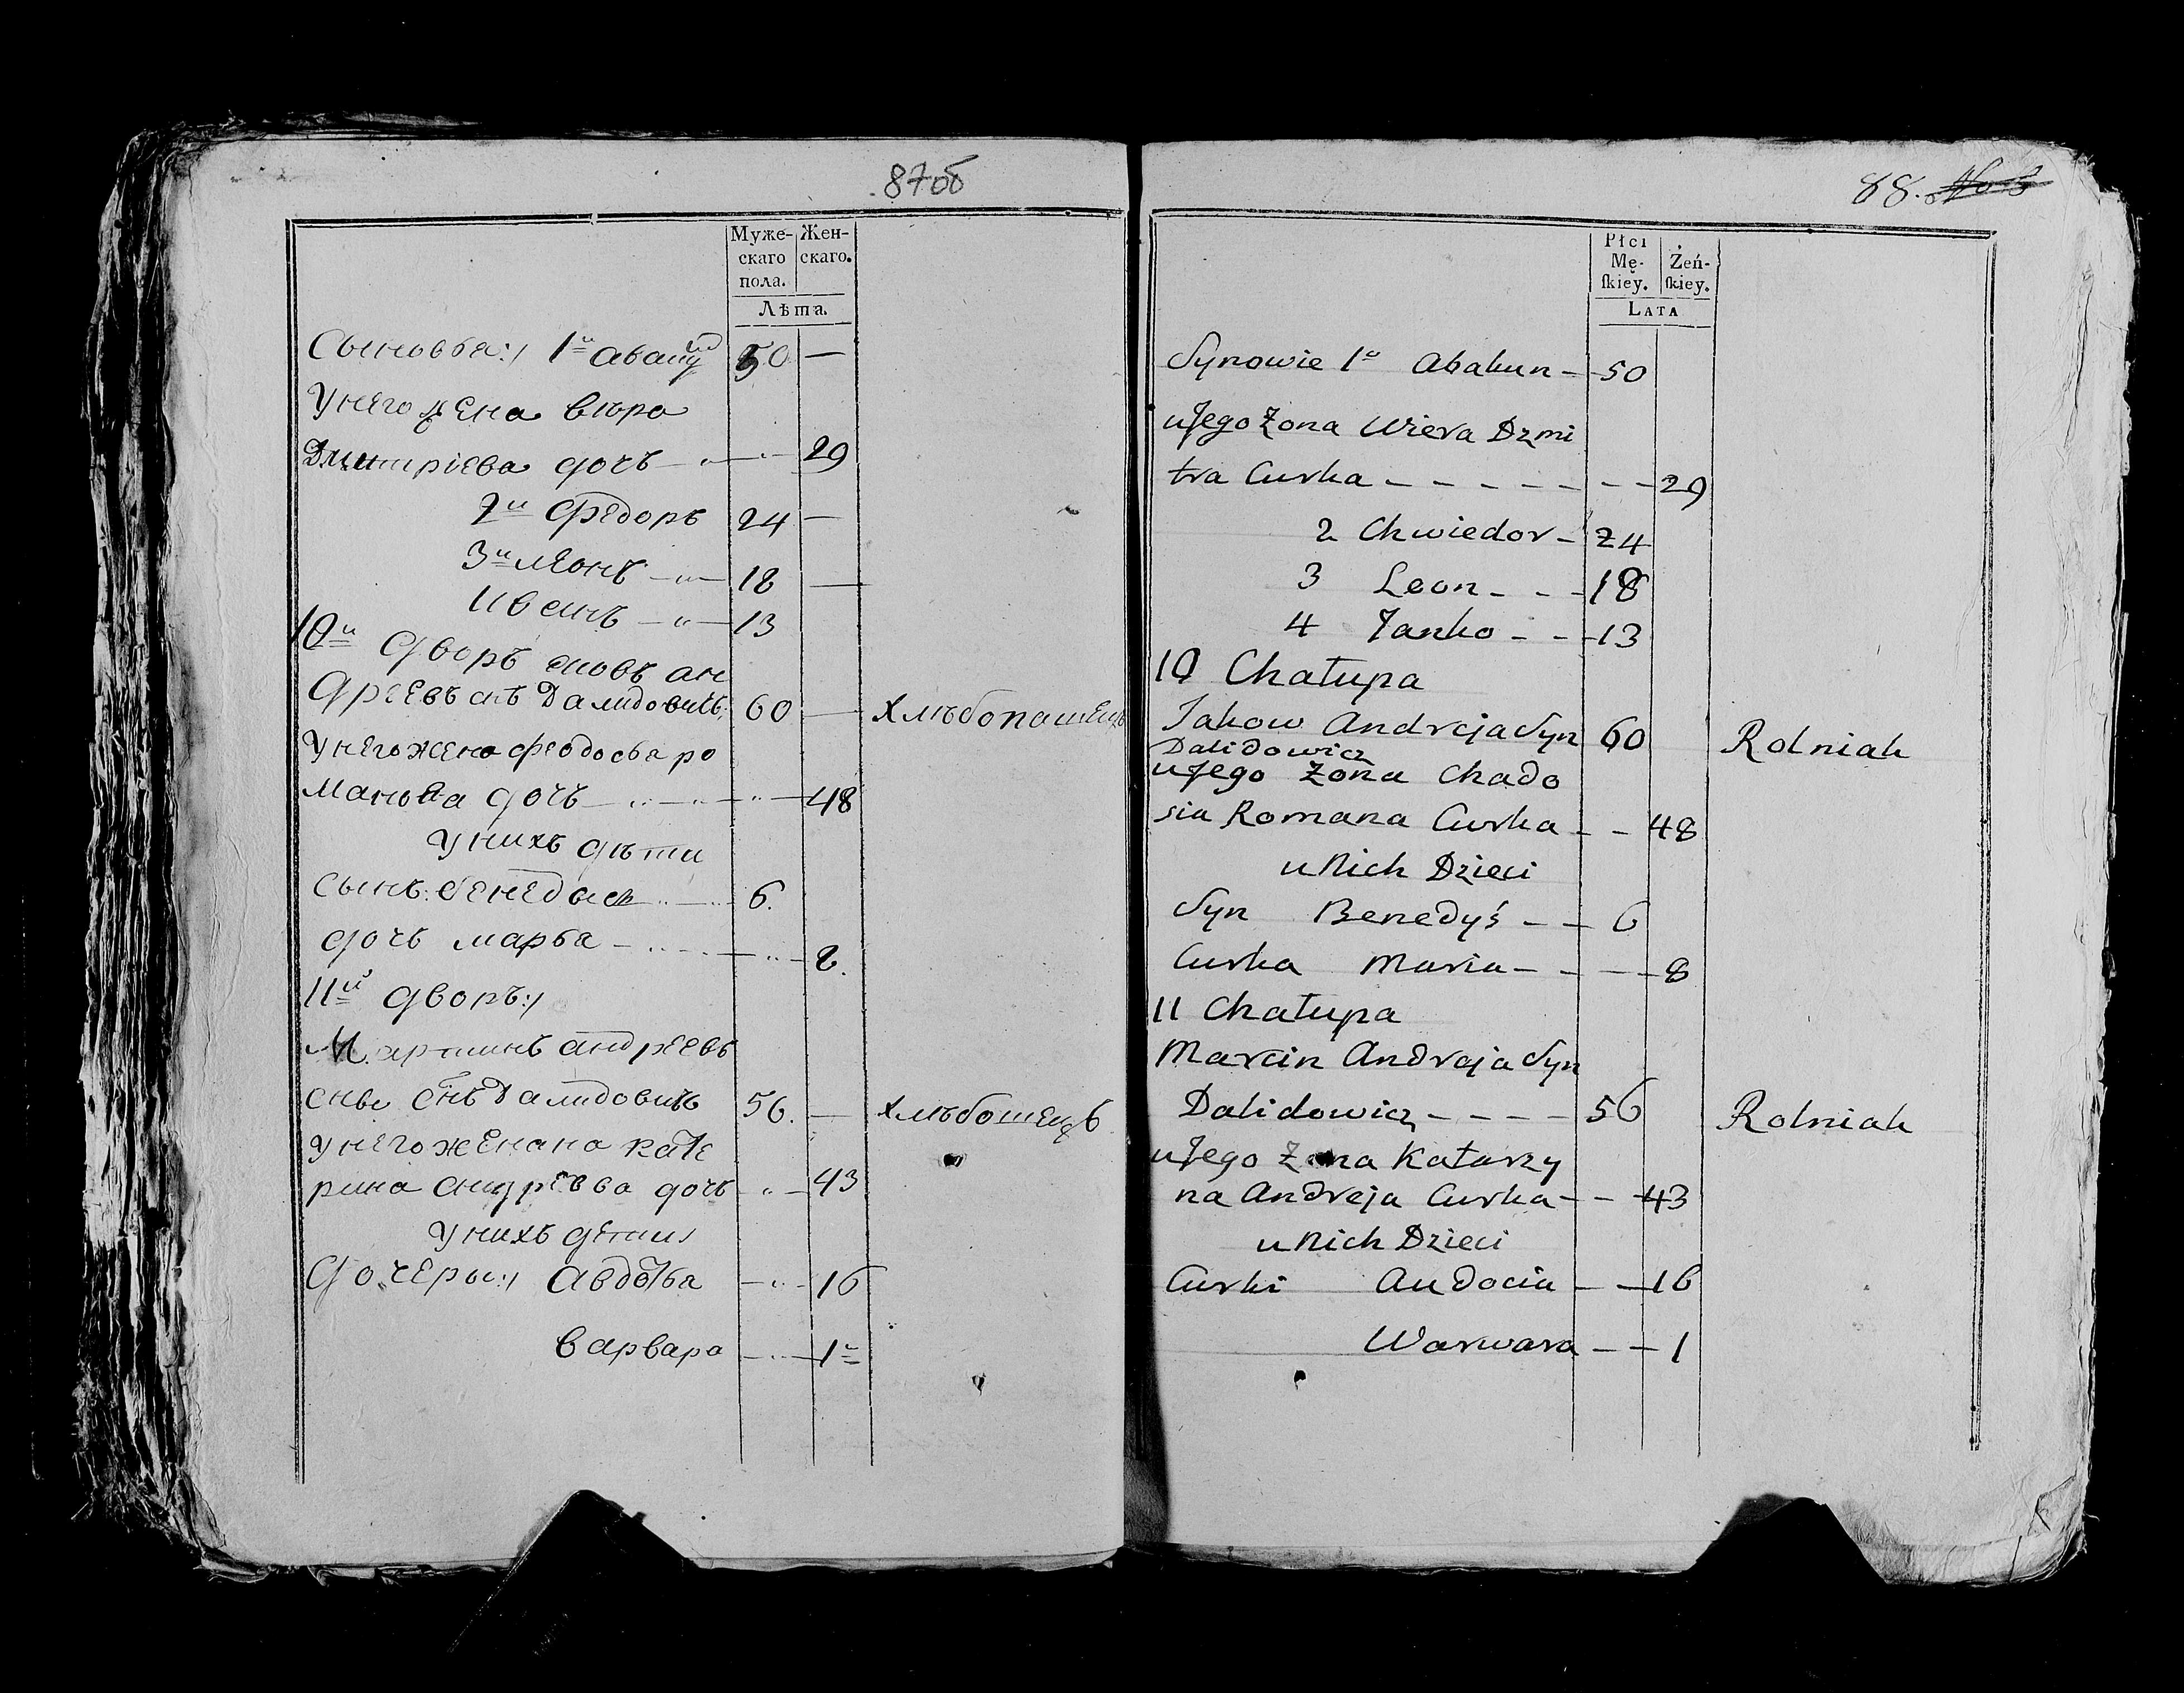 87об
Муже-
скаго
пола.
Жен-
скаго.
Лѣта.
Сыновья:/ 1й 50 —
У него жена вѣра
Дмитріева дочь 29
2й Федоръ 24 —
3й леонъ 18 —
Иванъ 13
10й дворъ ан
дреевъ снъ Далидовичь 60 — хлѣбопашецъ
У него жена феодосья ро
манова дочь 48
У нихъ дѣти
сынъ: бенедысь 6.
дочь марья 8.
11й дворъ:/
Мартинъ андреевъ
снъ Далидовичь 56. — хлѣбошецъ
У него жена ка
рина андреева дочь 43
У нихъ дети
Дочеры:/ Авдотья 16
варвара 1
88.
Płci
Mę-
ſkiey.
Żeń-
ſkiey.
LATA
Synowie 1o Abakun 50
u Jego Żona Wiera Dzmi
tra Curka 29
2 Chwiedor 24
3 Leon 18
4 Janko 13
10 Chałupa
Jakow Andreja Syn 60 Rolnik
Dalidowicz
u Jego Żona Chado
sia Romana Curka 48
u Nich Dzieci
Syn Benedyś 6
Curka Maria 8
11 Chałupa
Marcin Andreja Syn
Dalidowicz 56 Rolnik
u Jego Żona Katarzy
na Andreja Curka 43
u Nich Dzieci
Curki Audocia 16
Warwara 1